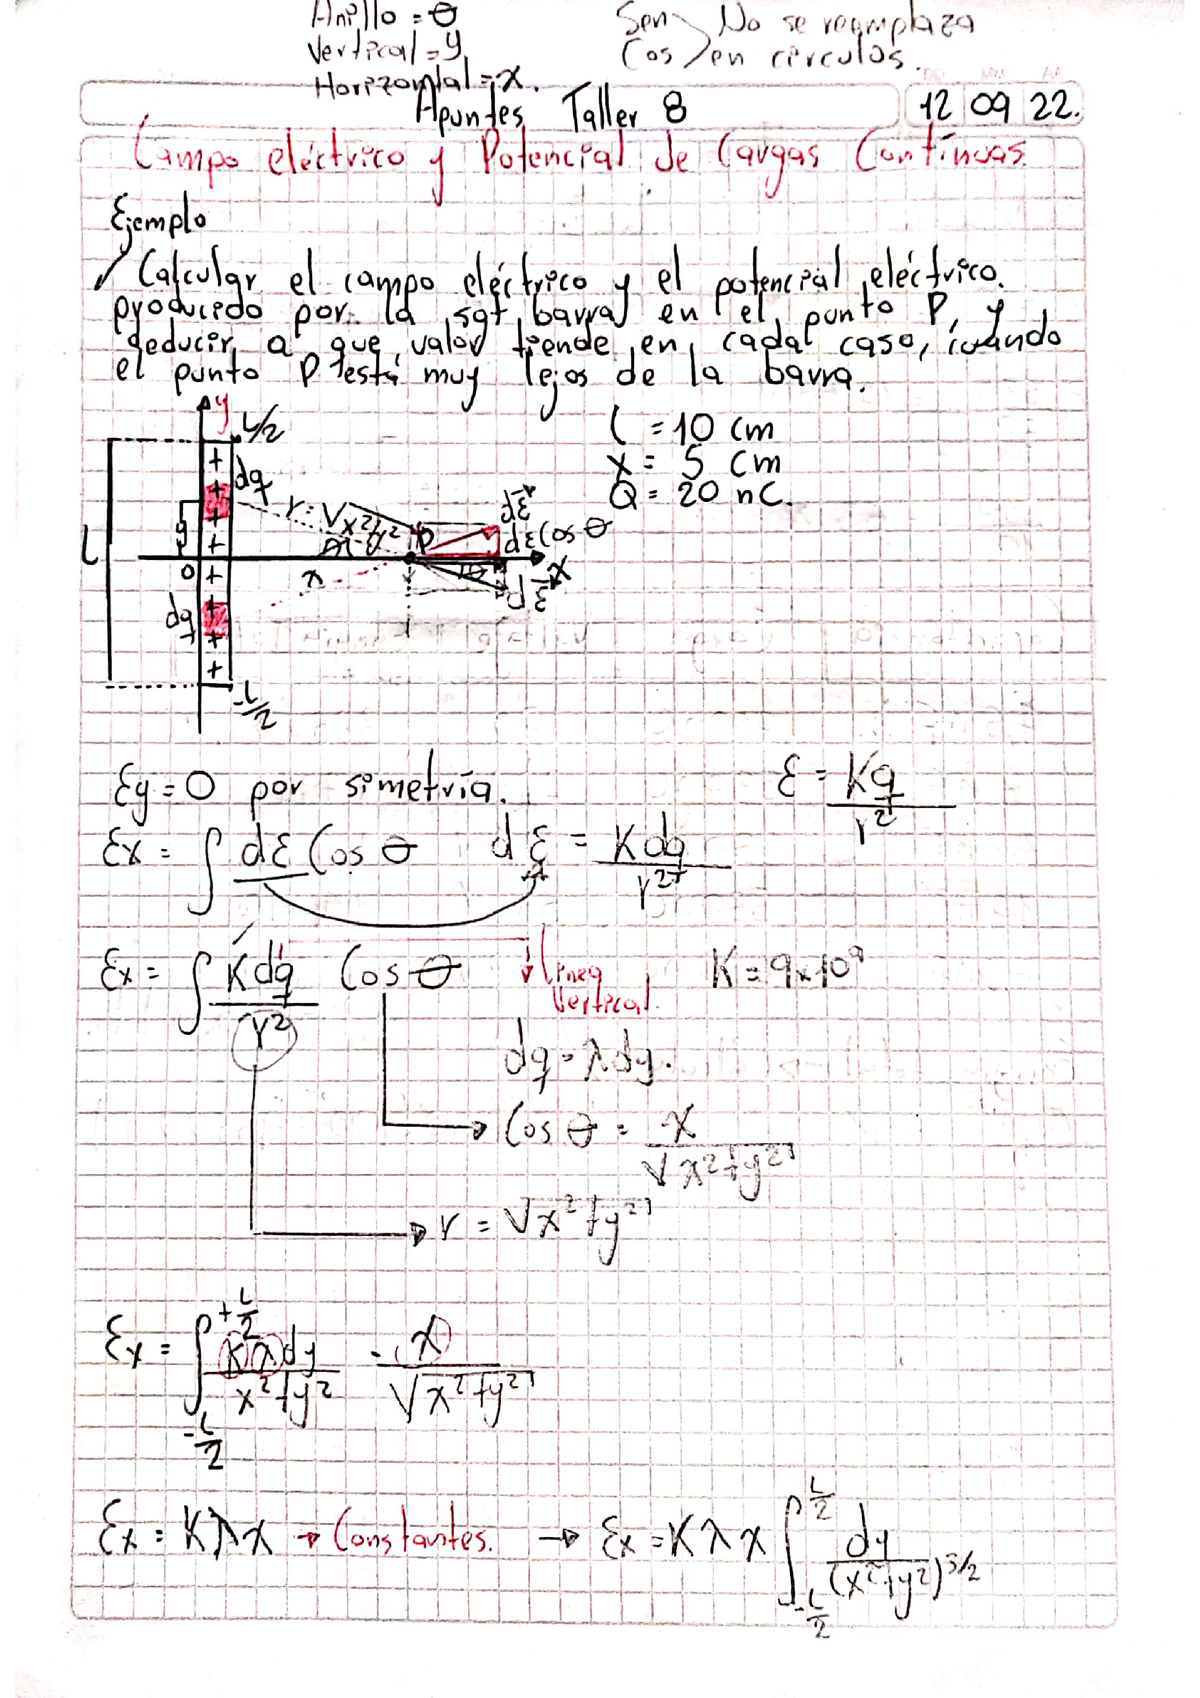 Anillo = θ
Vertical = y
Horizontal = x.
Sen
Cos
No se reemplaza
en círculos.
Apuntes Taller 8
12 09 22.
Campo eléctrico y Potencial de Cargas Contínuas.
Ejemplo
Calcular el campo eléctrico y el potencial eléctrico.
producido por la sgt barra en el punto P, y
deducir a que valor tiende en cada caso, cuando
el punto P está muy lejos de la barra.
L = 10 cm
x = 5 cm
Q = 20 nC.
y
L/2
dq
r = √x²+y²
P
dε
dε Cos θ
L
y
0
x
θ
X
dε
dq
-L/2
εy = 0 por simetría.
ε = Kq/r²
εx = ∫ dε Cos θ dε = Kdq/r²
εx = ∫ Kdq/r² Cos θ
Linea
Vertical
K = 9x10⁹
dq = λdy.
Cos θ = x/√x²+y²
r = √x²+y²
εx = ∫ +L/2 -L/2 Kλdy/x²+y² · x/√x²+y²
εx = Kλx → Constantes. → εx = Kλx ∫ L/2 -L/2 dy/(x²+y²)^3/2